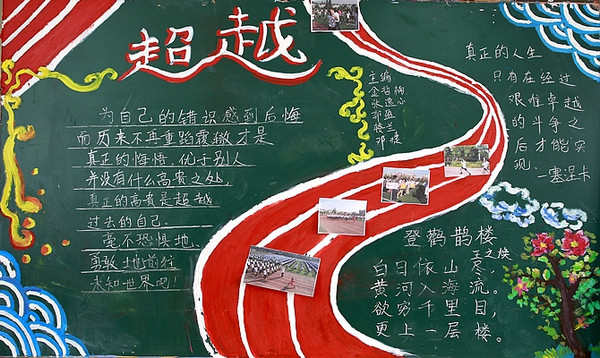 超越
为自己的错识感到后悔
而历来不再重蹈覆辙才是
真正的悔悟.优于别人
并没有什么高贵之处,
真正的高贵是超越
过去的自己.
毫不恐惧地、
勇敢地前往
未知世界吧!
主编
真正的人生
只有在经过
艰难卓越
的斗争之
后才能实
现.
—塞涅卡
登鹳鹊楼
王之涣
白日依山尽,
黄河入海流。
欲穷千里目,
更上一层楼。